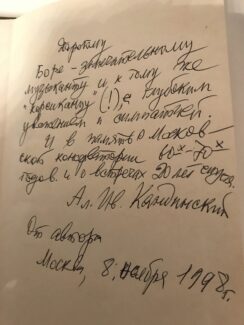 Дорогому
Боре - замечательному
музыканту и к тому же
"корейканту" (!), с глубоким
уважением и симпатией.
И в память о Москов-
ской консерватории 60х-70х
годов. и о встречах 20 лет спустя.
Ал. Ив. Кандинский
От автора
Москва, 8 ноября 1998г.